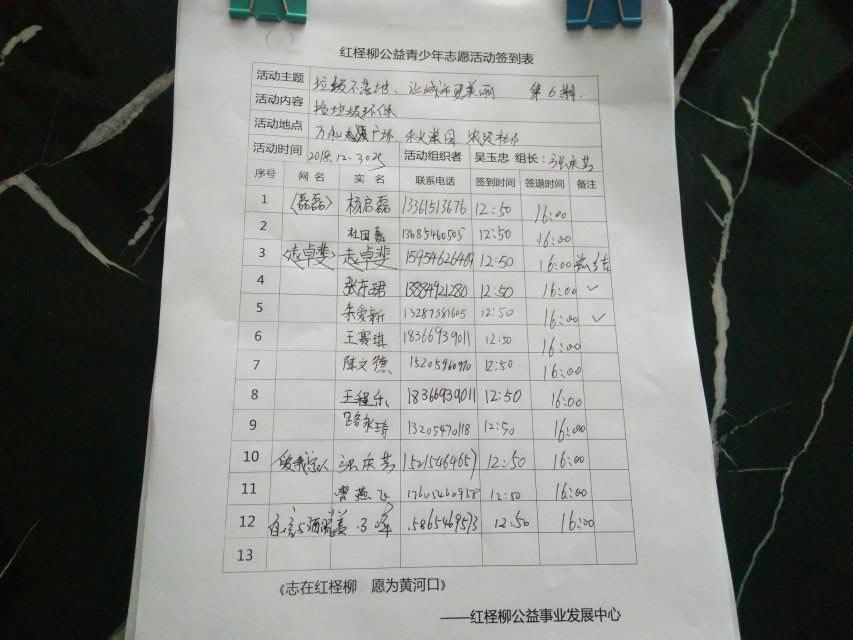 红柽柳公益青少年志愿活动签到表
活动主题 垃圾不落地、让城市更美丽 第6期.
活动内容 捡垃圾环保
活动地点 广场
活动时间 2018.12.30 活动组织者 吴玉忠 组长:张庆芸
序号 网名 实名 联系电话 签到时间 签退时间 备注
1 〈磊磊〉 杨启磊 13361513676 12:50 16:00
2 13685460505 12:50 16:00
3 卓斐 卓斐 15954626469 12:50 16:00 总结
4 张东珺 13884921280 12:50 16:00 ✓
5 朱爱新 13287381605 12:50 16:00 ✓
6 王赛琪 18366939011 12:50 16:00
7 陈文德 12:50 16:00
8 王程乐 18366939011 12:50 16:00
9 路永琦 13205470118 12:50 16:00
10 张庆芸 15215464657 12:50 16:00
11 曹燕飞 17605460958 12:50 16:00
12 12:50 16:00
13
《志在红柽柳 愿为黄河口》
——红柽柳公益事业发展中心